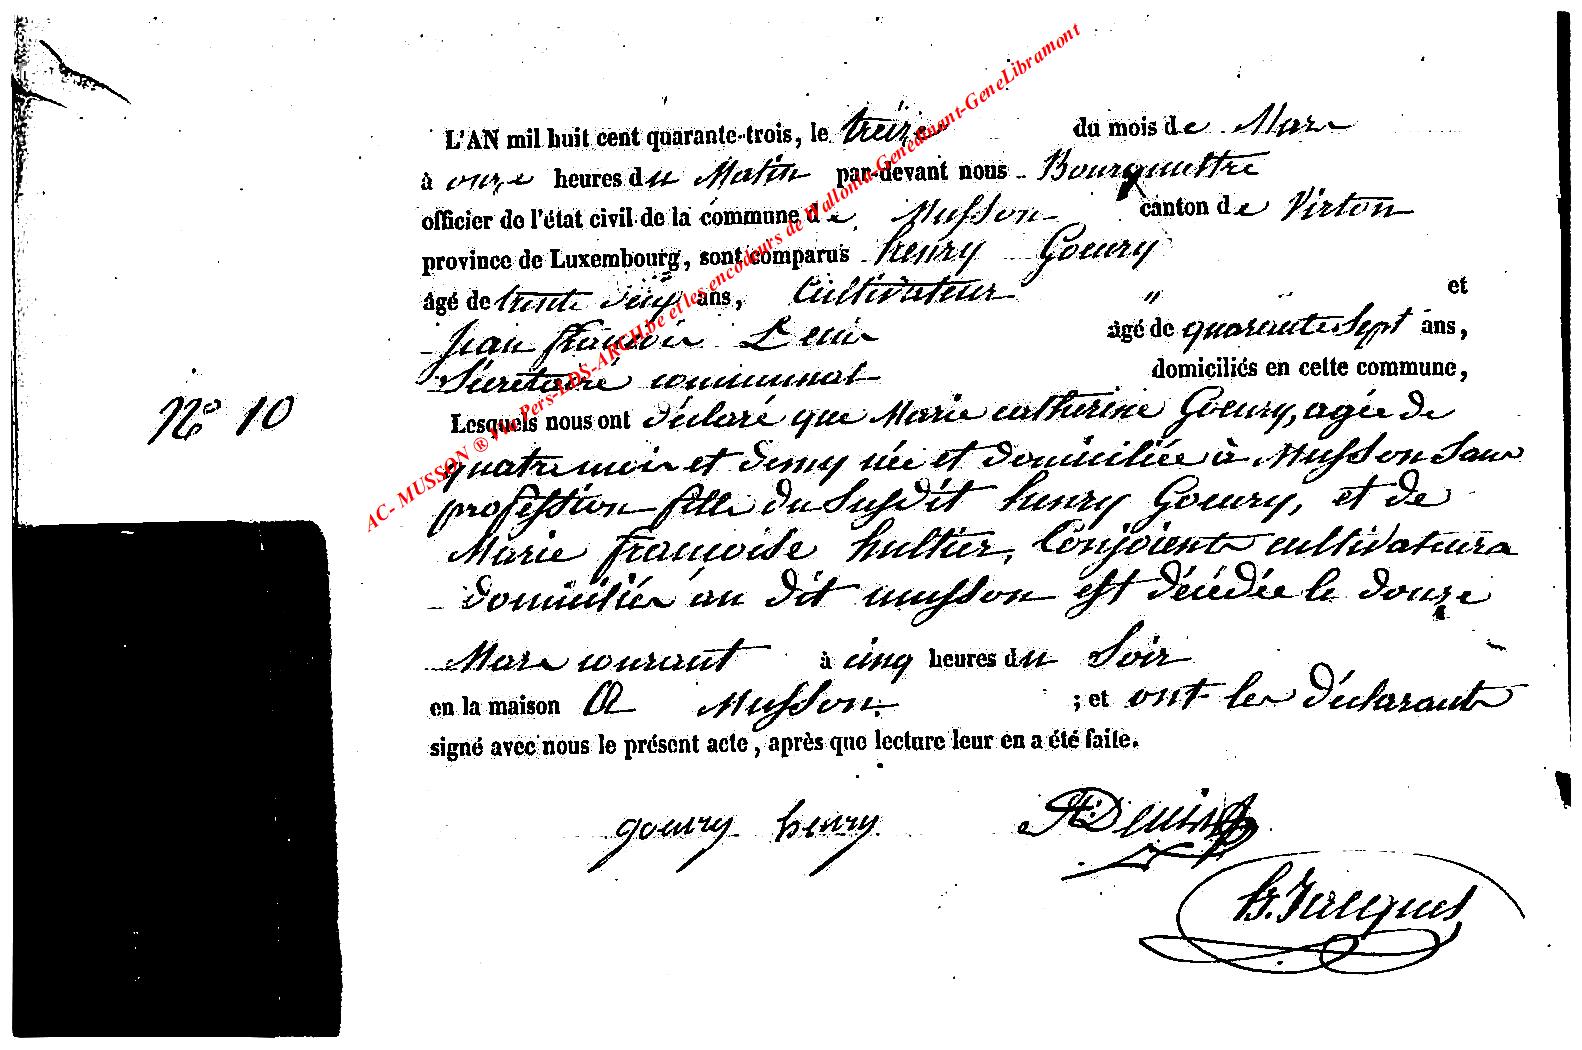 L'AN mil huit cent quarante-trois, le treize du mois de Mars
à onze heures du Matin par-devant nous Bourguettre
officier de l'état civil de la commune de Musson canton de Virton
province de Luxembourg, sont comparus henry Goeury
âgé de trente deux ans, Cultivateur " " et
Jean françois Denis âgé de quarante Sept ans,
Sécrétaire communal domiciliés en cette commune,
N° 10
Lesquels nous ont déclaré que Marie catherine Goeury, agée de
quatre mois et demy née et domiciliée à Musson Sans
profession fille du Susdit henry Goeury, et de
Marie françoise hultier, Conjoients cultivateurs
domiciliés au dit musson est décédée le douze
Mars courant à cinq heures du Soir
en la maison a Musson ; et ont les déclarants
signé avec nous le présent acte, après que lecture leur en a été faite.
goeury henry Denis
h. Jacques
AC- MUSSON ® Pers-LDS-ARCH.be et les encodeurs de Wallonia-Genedinant-GeneLibramont